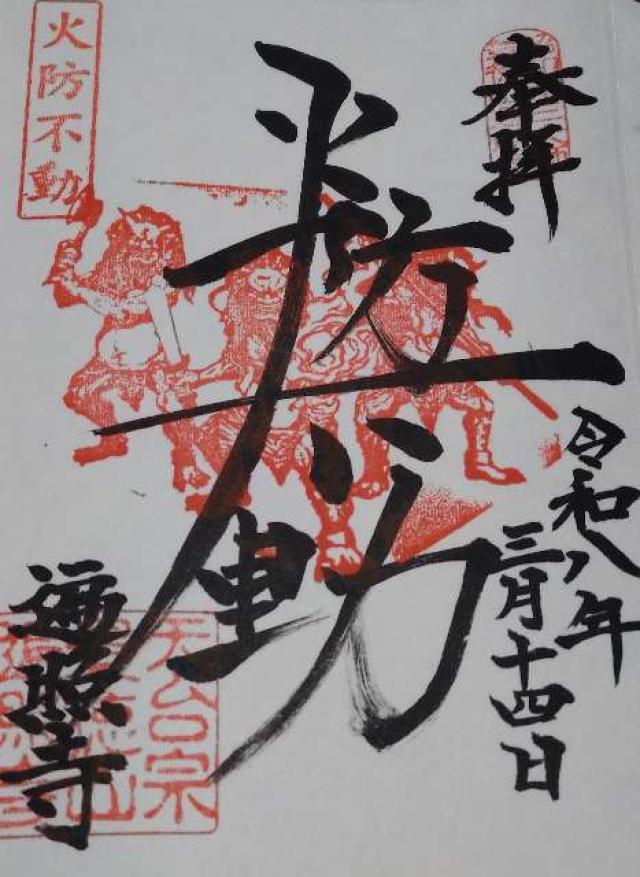 奉拝
令和八年
三月十四日
火防不動
火防不動
遍照寺
天台宗